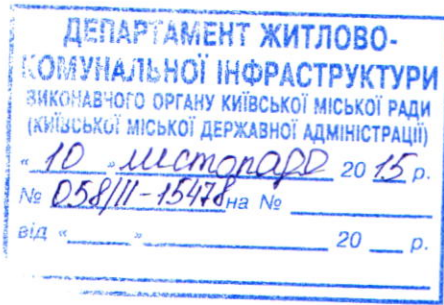 ДЕПАРТАМЕНТ ЖИТЛОВО-
КОМУНАЛЬНОЇ ІНФРАСТРУКТУРИ
ВИКОНАВЧОГО ОРГАНУ КИЇВСЬКОЇ МІСЬКОЇ РАДИ
(КИЇВСЬКОЇ МІСЬКОЇ ДЕРЖАВНОЇ АДМІНІСТРАЦІЇ)
« 10 » листопада 20 15 р.
№ 058/11-15478 на №
від « » 20 р.